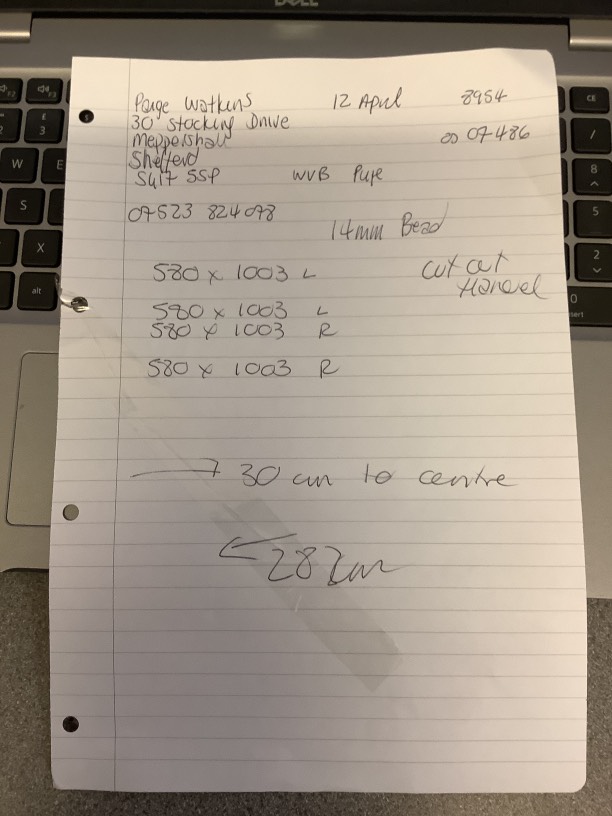 Paige Watkins 12 April 8954
30 Stocking Drive
Meppershall 07486
Shefford
SG17 5SP WVB Pure
07523 824098
14mm Bead
580 x 1003 L cut out
580 x 1003 L
580 x 1003 R
580 x 1003 R
→ 30 cm to centre
← 282cm
DELL